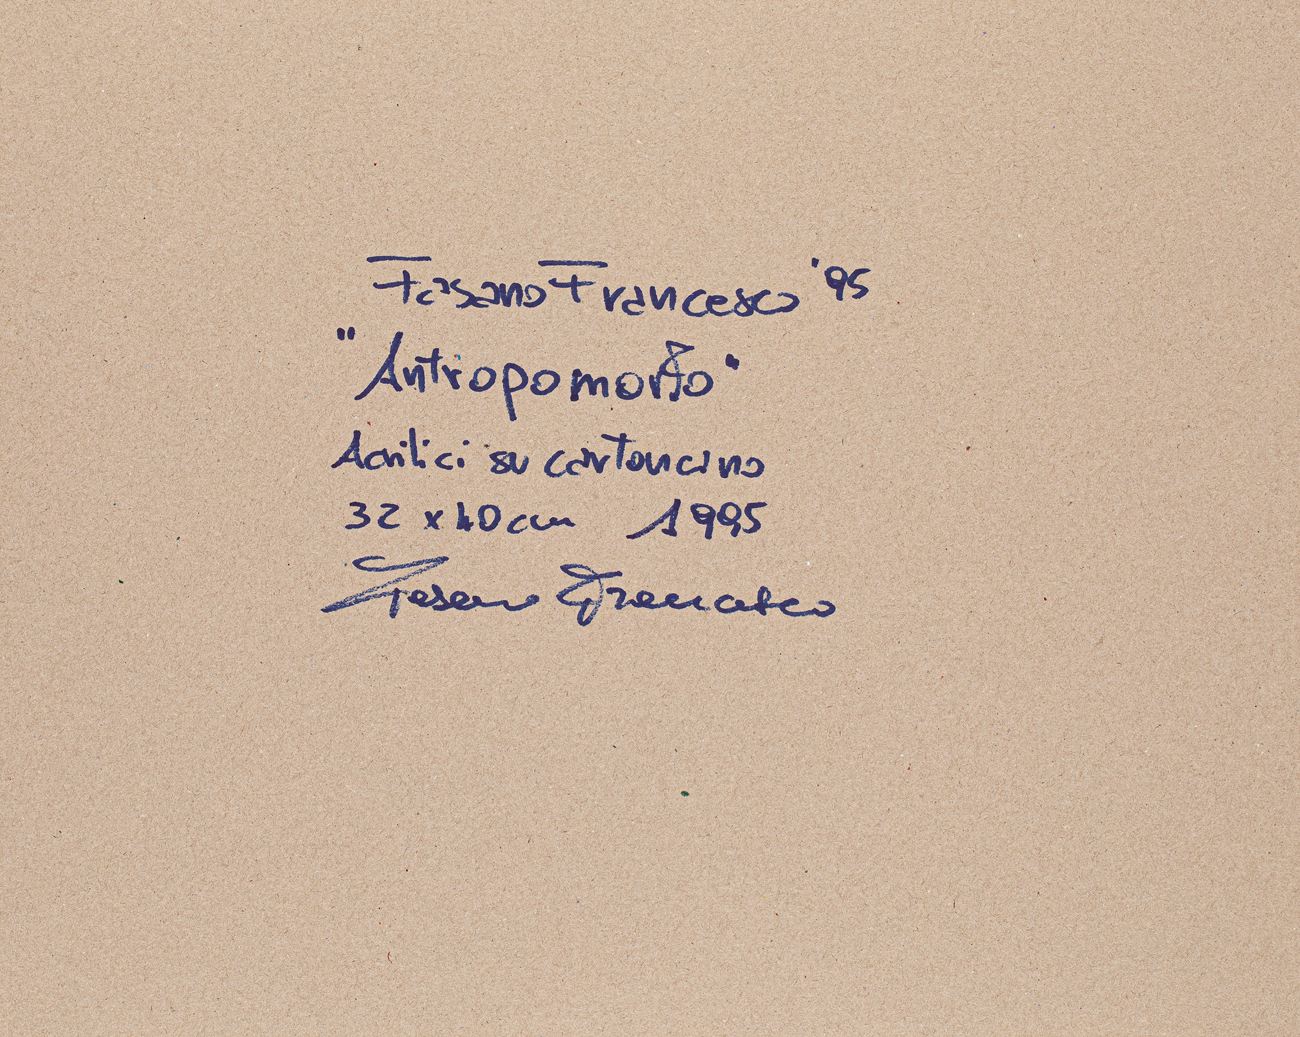 Fasano Francesco '95
"Antropomorfo"
Acrilici su cartoncino
32 x 40 cm 1995
Fasano Francesco